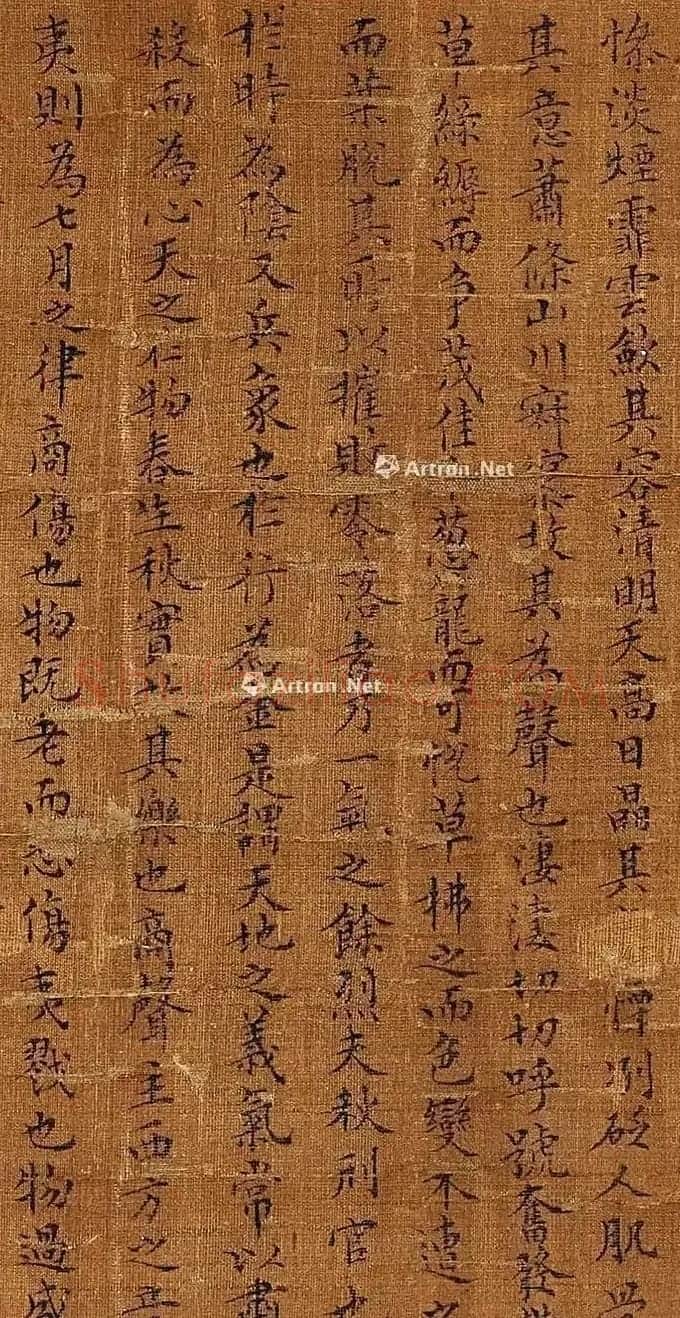 慘淡煙霏雲歛其容清明天高日晶其慄冽砭人肌
其意蕭條山川寂寥故其為聲也淒淒切切呼號奮發
草綠縟而爭茂佳木葱蘢而可悅草拂之而色變木遭之
而葉脫其所以摧敗零落者乃一氣之餘烈夫秋刑官也
於時為陰又兵象也於行為金是謂天地之義氣常以肅
殺而為心天之於物春生秋實故其樂也商聲主西方之音
夷則為七月之律商傷也物既老而悲傷夷戮也物過盛
Artron.Net
Artron.Net